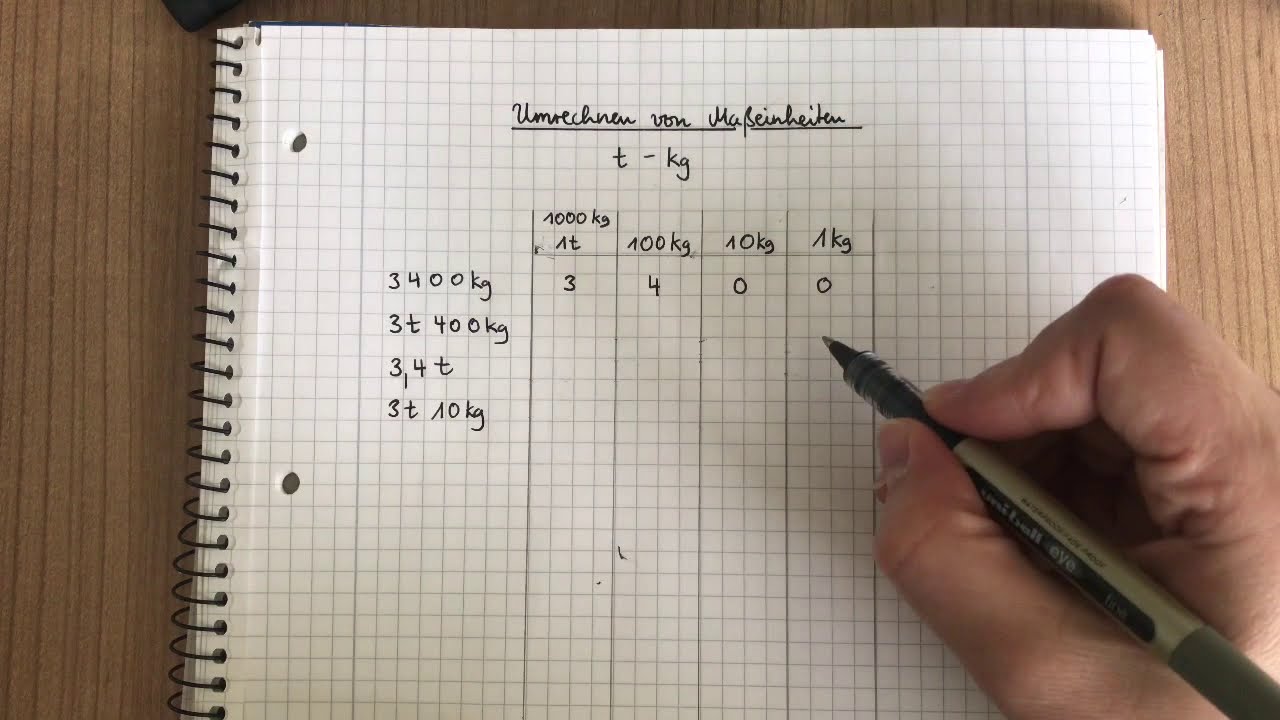 Umrechnen von Maßeinheiten
t - kg
1000 kg
1t 100 kg 10 kg 1 kg
3400 kg 3 4 0 0
3t 400 kg
3,4 t
3t 10 kg
uni-ball eye
fine